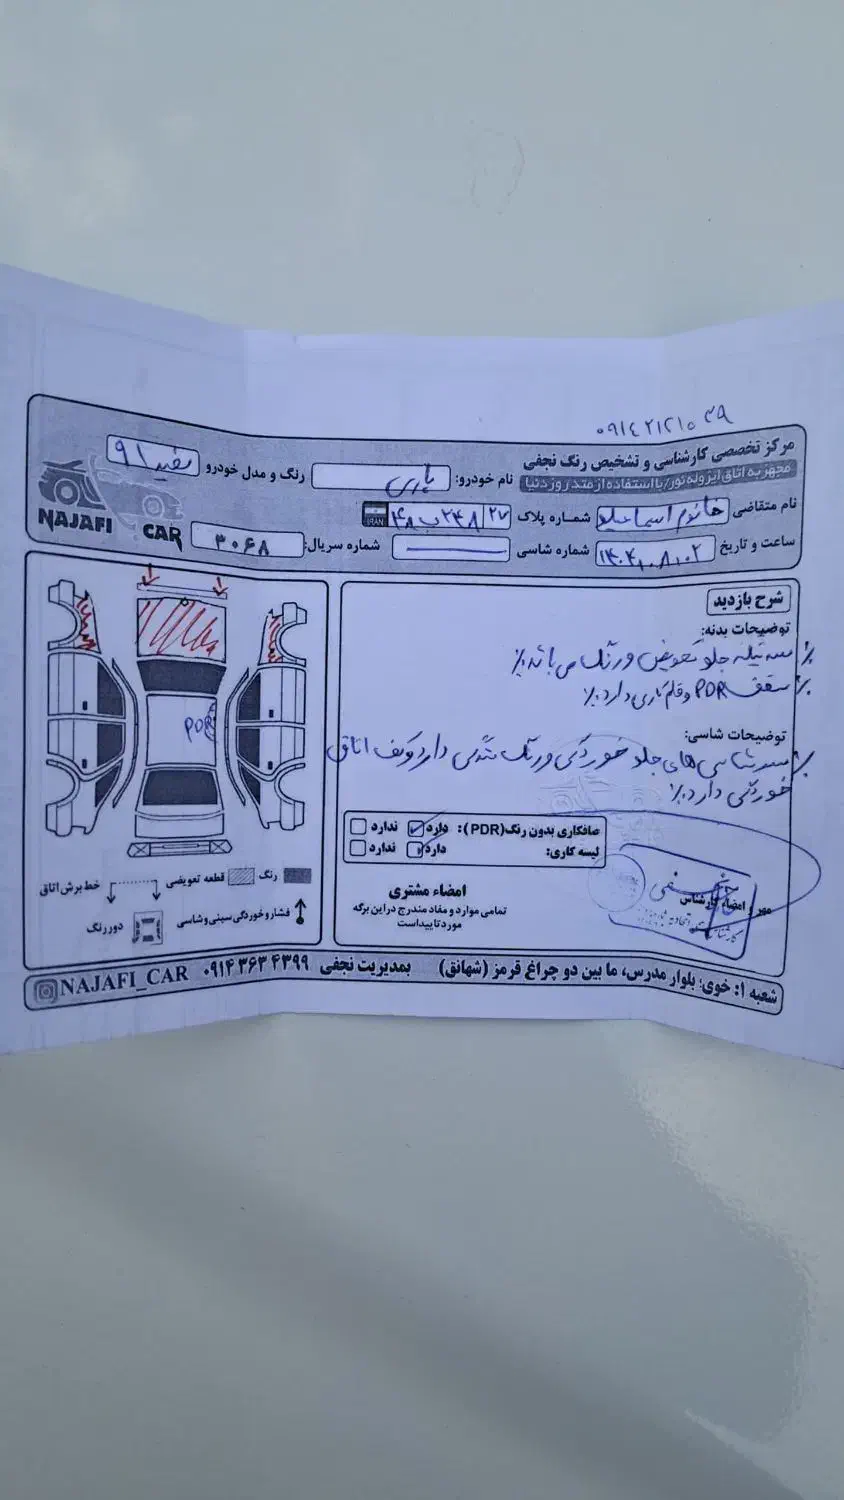 ۰۹۱۴۲۱۲۱۰۳۹
مرکز تخصصی کارشناسی و تشخیص رنگ نجفی
مجهز به اتاق ایزوله نور/با استفاده از متد روز دنیا
نام متقاضی خانوم اسماعیلو
ساعت و تاریخ ۱۴۰۴,۰۸,۰۲
نام خودرو: پارس
شماره پلاک ۲۷ ۲۴۸ب۴۸
IRAN
شماره شاسی
رنگ و مدل خودرو سفید ۹۱
شماره سریال: ۳۰۶۸
NAJAFI CAR
شرح بازدید
توضیحات بدنه:
٪ سه تیکه جلو تعویض و رنگ می باشد٪
٪ سقف PDR و قلم کاری دارد٪
توضیحات شاسی:
٪ سرشاسی های جلو خوردگی و رنگ شدگی دارد و کف اتاق
خوردگی دارد٪
صافکاری بدون رنگ(PDR): دارد ندارد
لیسه کاری: دارد ندارد
مهر و امضاء کارشناس
نجفی
امضاء مشتری
تمامی موارد و مفاد مندرج در این برگه
مورد تایید است
PDR
رنگ
قطعه تعویضی
خط برش اتاق
فشار و خوردگی سینی و شاسی
دور رنگ
شعبه ۱: خوی؛ بلوار مدرس، ما بین دو چراغ قرمز (شهانق) بمدیریت نجفی ۰۹۱۴۳۶۳۴۳۹۹ NAJAFI_CAR